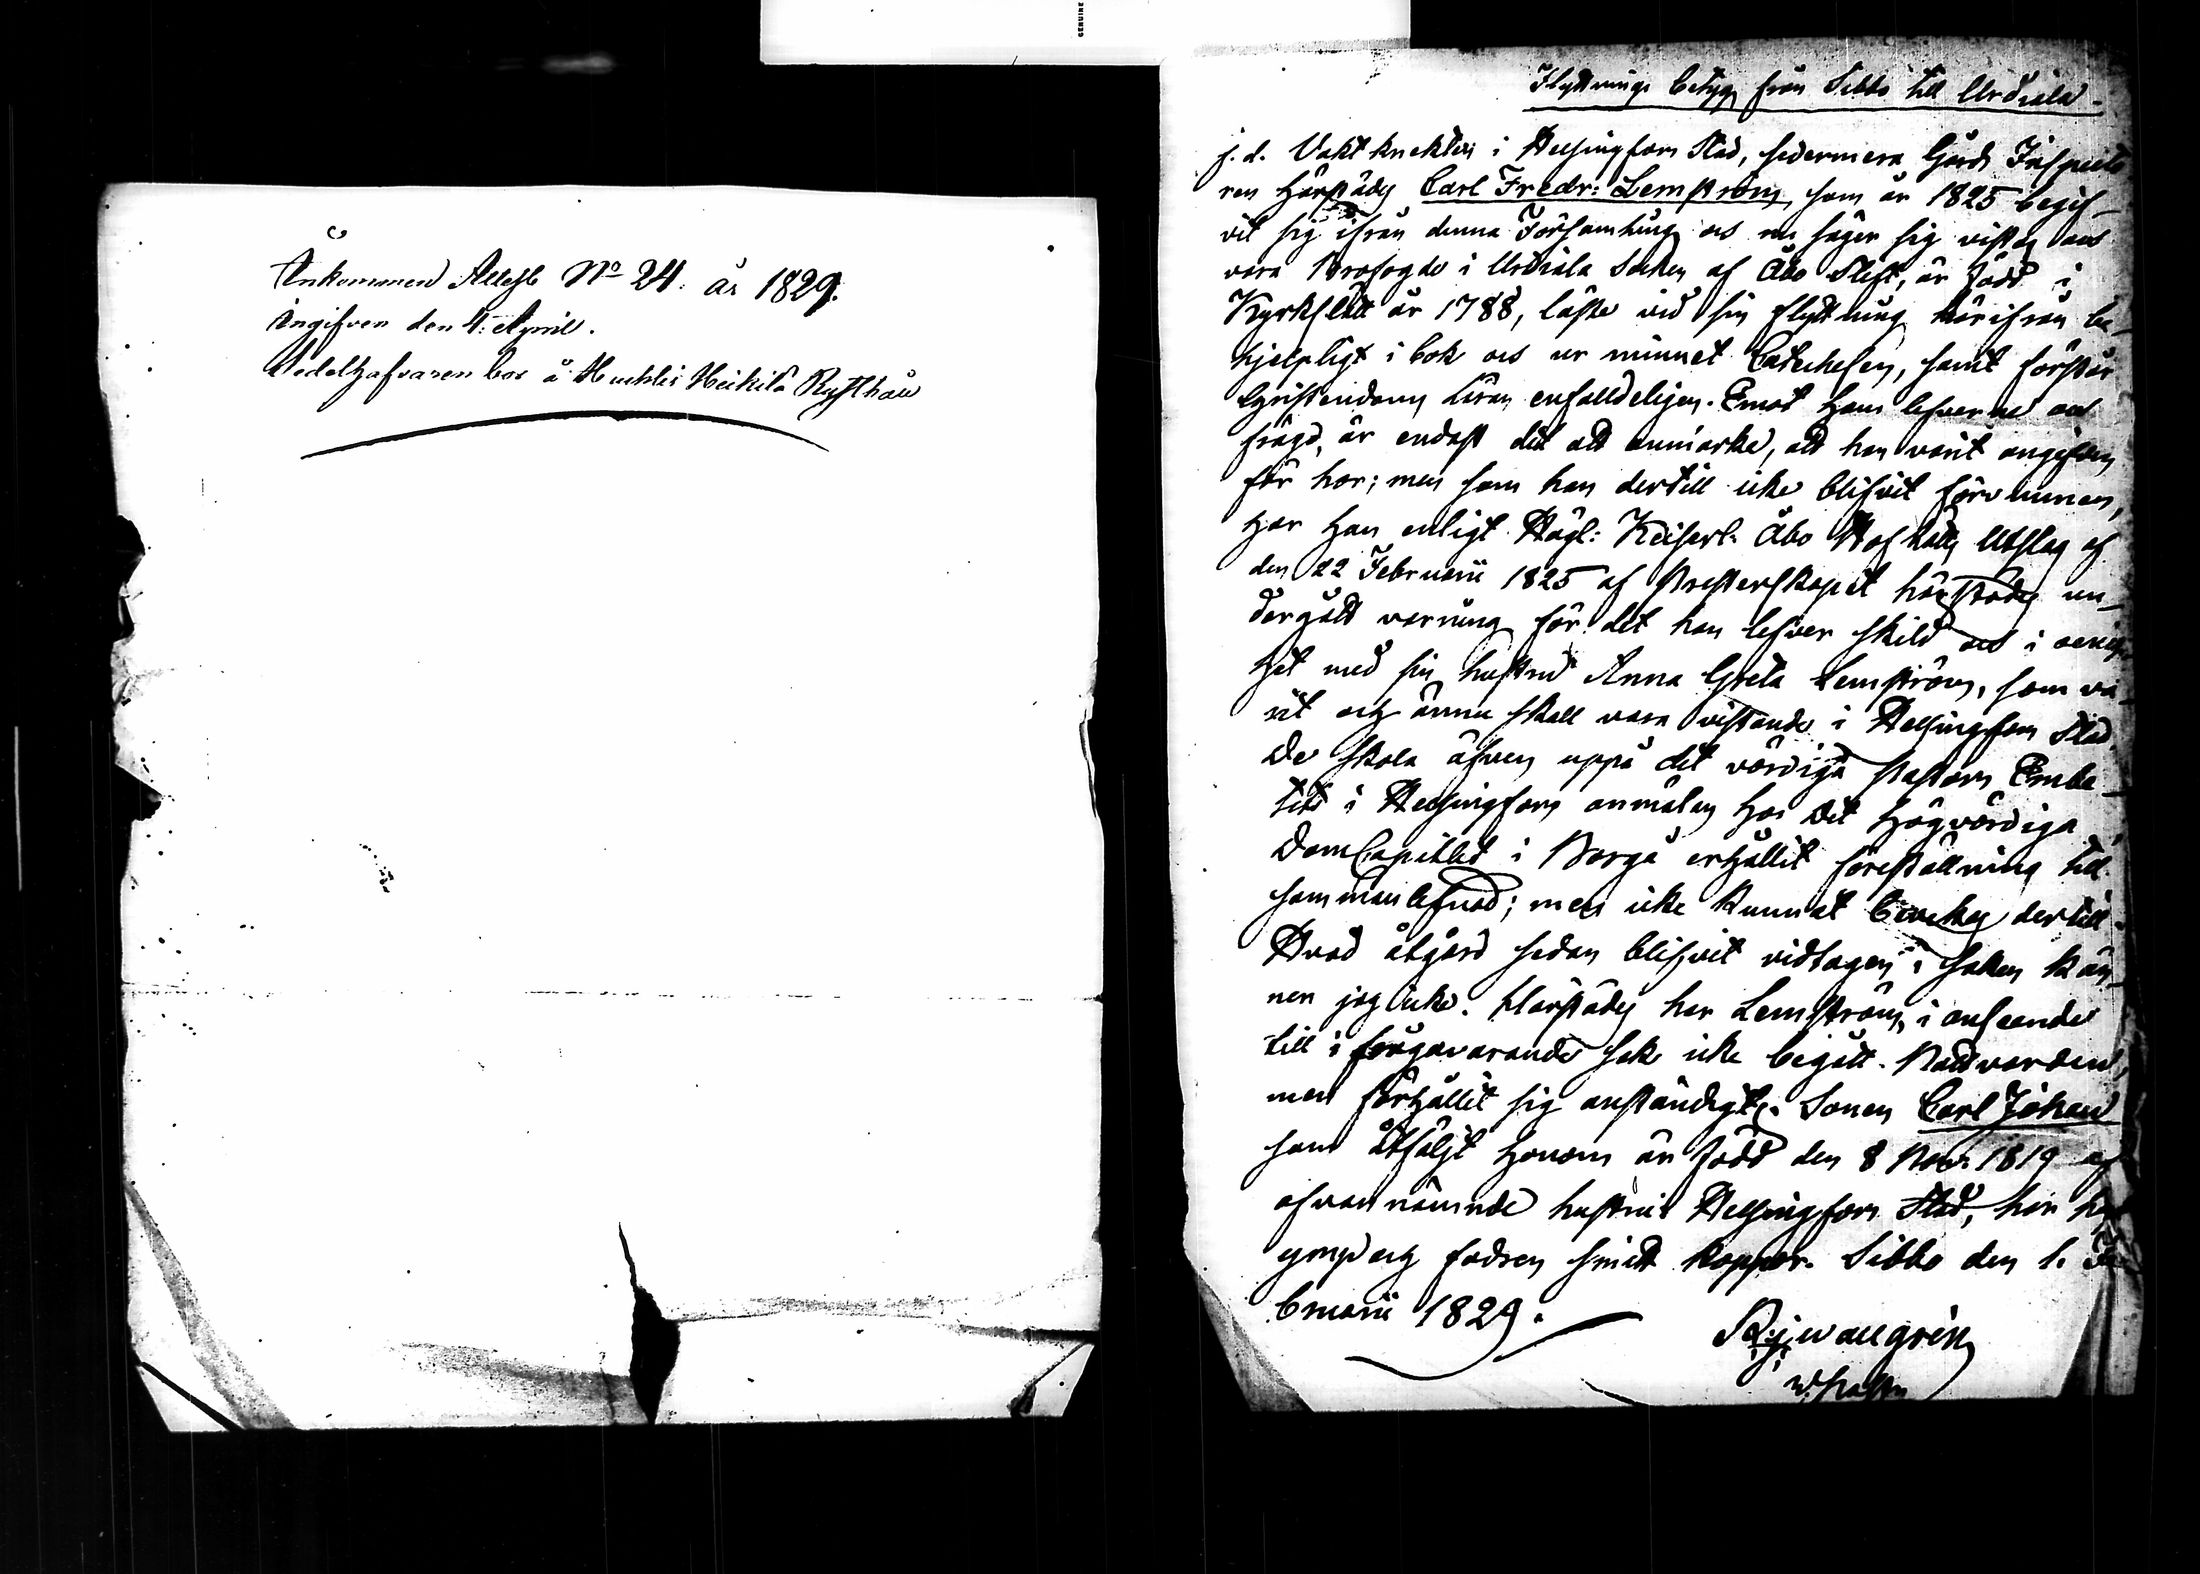 Ankommen Attest No 24. år 1829.
Ingifven den 4. April.
Vedelhafvaren bor å Huhtis Heikilä Rusthåll
GENUINE
Flyttnings betyg från Sibbo till Urdiala.
f.d. Vaktknekten i Helsingfors Stad, sedermera Gårds Inspecto
ren härstädes Carl Fredr: Lemström, som år 1825 begif-
vit sig ifrån denna Församling och nu säger sig vistas och
vara Brofogde i Urdiala Socken af Åbo Stift, är född i
Kyrkslätt år 1788, läste vid sin flyttning härifrån be-
hjelpligt i bok och ur minnet Catechesen, samt förstår
Christendoms Läran enfalldeligen. Emot hans lefverne och
frägd, är endast det att anmärka, att han varit angifven
för hor; men som han dertill icke blifvit förvunnen,
har han enligt Högl: Keiserl. Åbo HofRätts Utslag af
den 22 Februarii 1825 af Presterskapet härstädes un-
dergått varning för det han lefver skild och i oenig-
het med sin hustru Anna Greta Lemström, som va-
rit och ännu skall vara vistande i Helsingfors Stad.
De skola äfven uppå det vördiga Pastors Embe-
tets i Helsingfors anmälan hos Det Högvördiga
DomCapitlet i Borgå erhållit föreställning till
sammanlefnad; men icke kunnat bevekas dertill.
Hvad åtgärd sedan blifvit vidtagen i saken kän-
ner jag icke. Härstädes har Lemström, i anseende
till i frågavarande sak icke begått Nattvarden,
men förhållit sig anständigt. Sonen Carl Johan
som åtföljt honom är född den 8 Nov: 1819 af
ofvannämnde hustru i Helsingfors Stad, har haft
ymp och fadren smitt koppor. Sibbo den 1. Fe
bruarii 1829.
wallgrén
v. Pastor